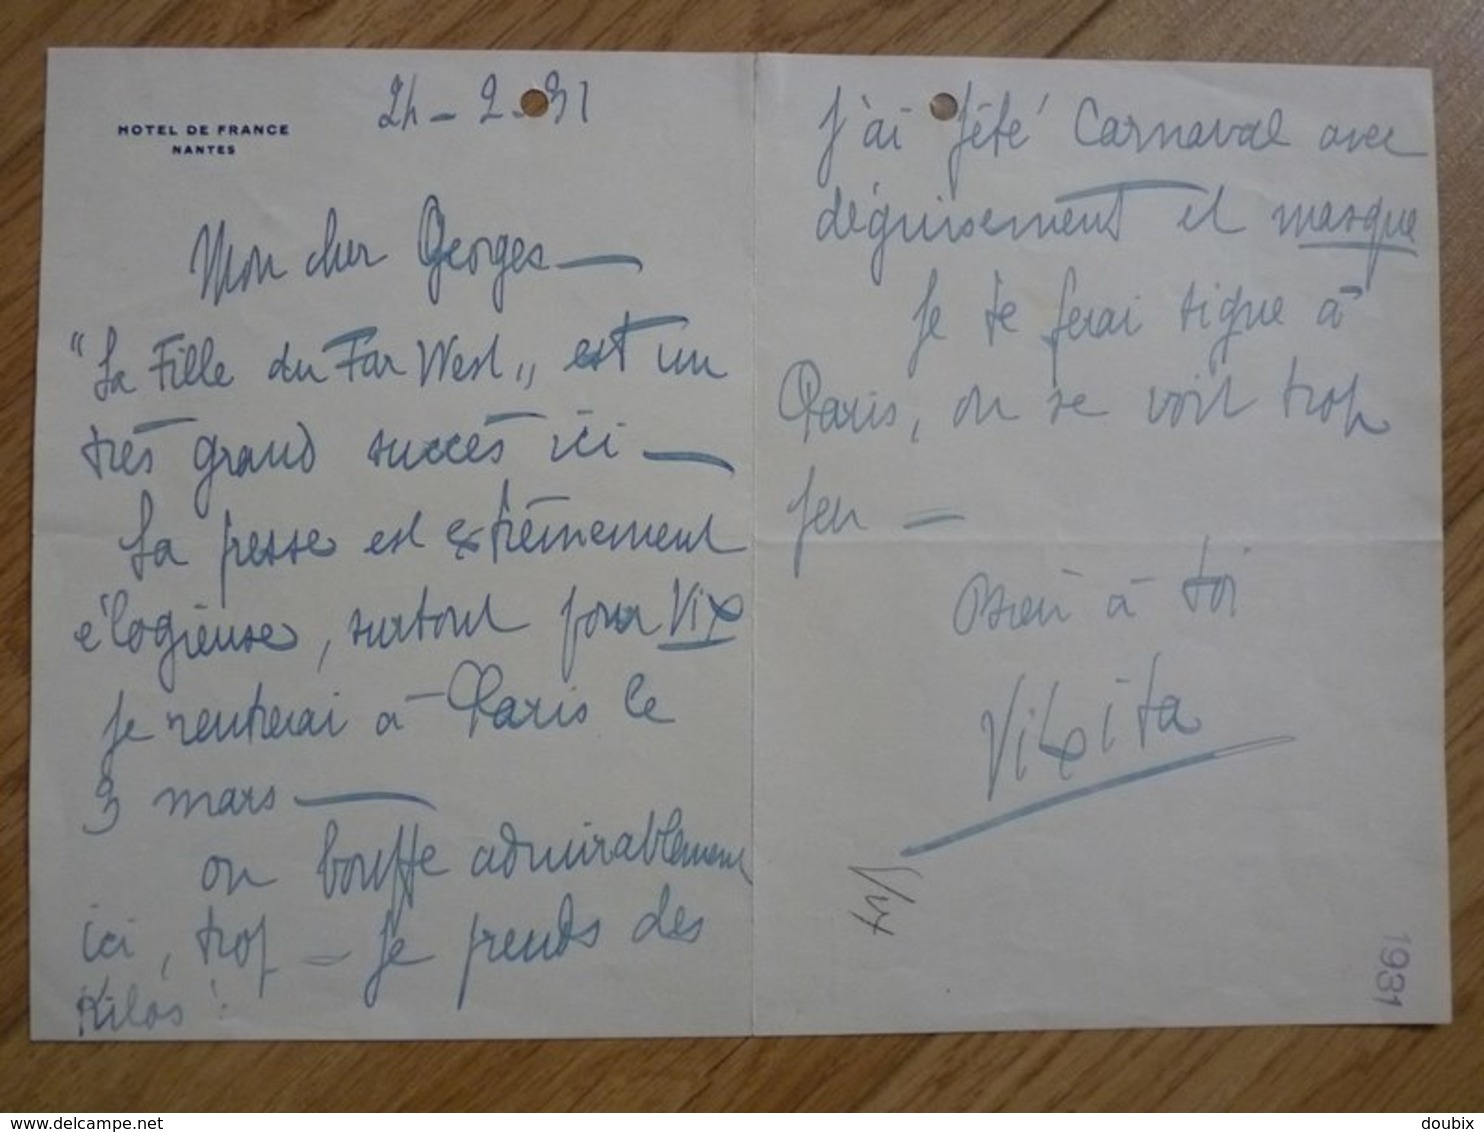 HOTEL DE FRANCE
NANTES
24 - 2 - 31
Mon cher Georges —
"La Fille du Far West" est un
très grand succès ici —
La presse est extrêmement
élogieuse, surtout pour Vix
Je rentrerai à Paris le
3 mars —
on bouffe admirablement
ici, trop — Je prends des
Kilos !
J'ai fêté Carnaval avec
déguisement et masque
Je te ferai signe à
Paris, on se voit trop
peu —
Bien à toi
Vixita
1931
delcampe.net
doubix